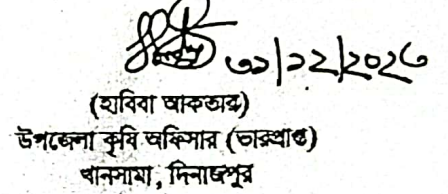 ৩১/১২/২০২৩
(হাবিবা আকতার)
উপজেলা কৃষি অফিসার (ভারপ্রাপ্ত)
খানসামা, দিনাজপুর